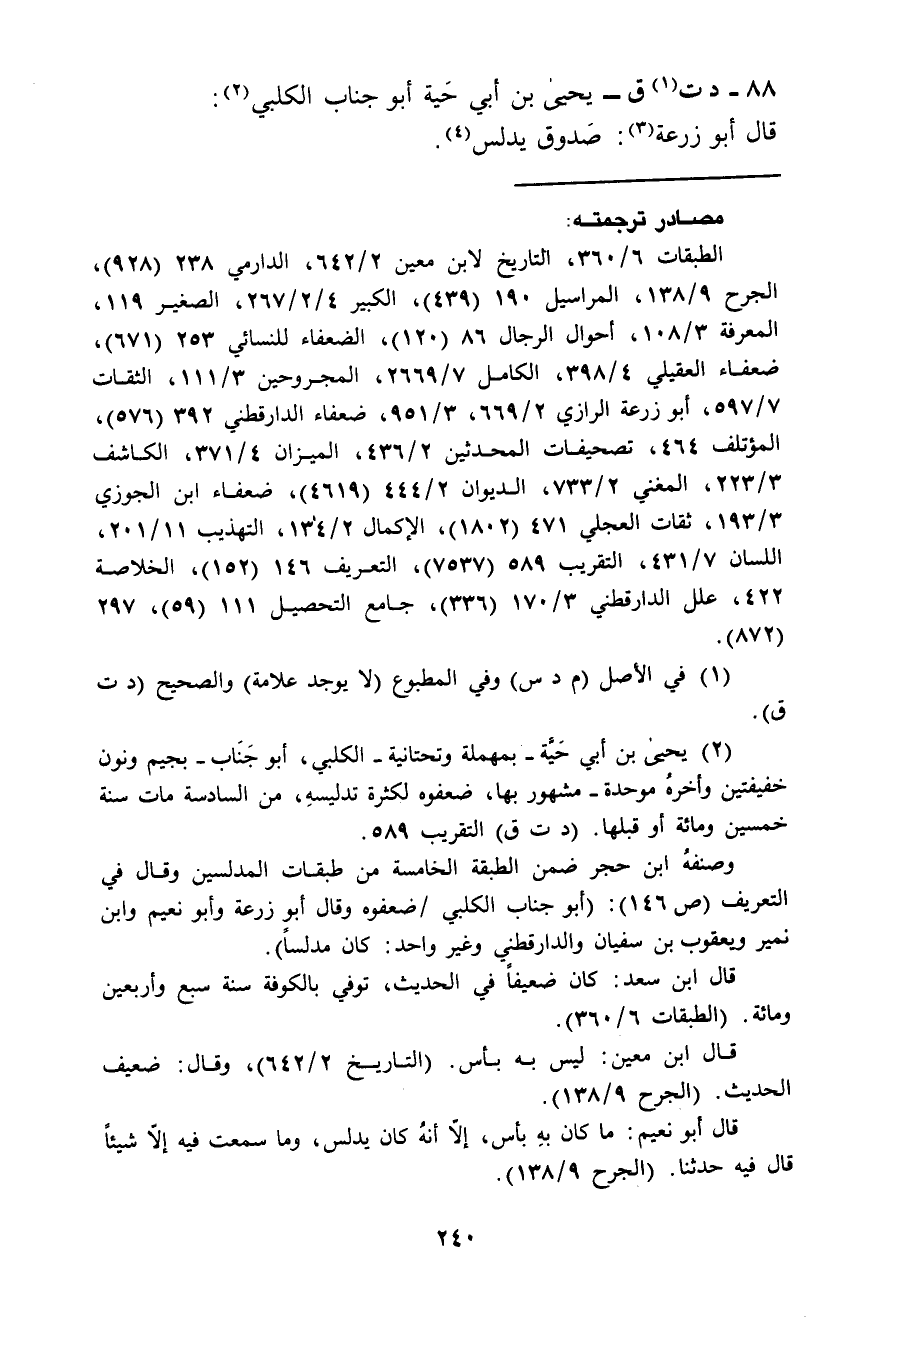 ٨٨ - د ت(١) ق - يحيىٰ بن أبي حَية أبو جناب الكلبي(٢):
قال أبو زرعة(٣): صَدوق يدلس(٤).
مصادر ترجمته:
الطبقات ٣٦٠/٦، التاريخ لابن معين ٦٤٢/٢، الدارمي ٢٣٨ (٩٢٨)،
الجرح ١٣٨/٩، المراسيل ١٩٠ (٤٣٩)، الكبير ٢٦٧/٢/٤، الصغير ١١٩،
المعرفة ١٠٨/٣، أحوال الرجال ٨٦ (١٢٠)، الضعفاء للنسائي ٢٥٣ (٦٧١)،
ضعفاء العقيلي ٣٩٨/٤، الكامل ٢٦٦٩/٧، المجروحين ١١١/٣، الثقات
٥٩٧/٧، أبو زرعة الرازي ٦٦٩/٢، ٩٥١/٣، ضعفاء الدارقطني ٣٩٢ (٥٧٦)،
المؤتلف ٤٦٤، تصحيفات المحدثين ٤٣٦/٢، الميزان ٣٧١/٤، الكاشف
٢٢٣/٣، المغني ٧٣٣/٢، الديوان ٤٤٤/٢ (٤٦١٩)، ضعفاء ابن الجوزي
١٩٣/٣، ثقات العجلي ٤٧١ (١٨٠٢)، الإكمال ١٣٤/٢، التهذيب ٢٠١/١١،
اللسان ٤٣١/٧، التقريب ٥٨٩ (٧٥٣٧)، التعريف ١٤٦ (١٥٢)، الخلاصة
٤٢٢، علل الدارقطني ١٧٠/٣ (٣٣٦)، جامع التحصيل ١١١ (٥٩)، ٢٩٧
(٨٧٢).
(١) في الأصل (م د س) وفي المطبوع (لا يوجد علامة) والصحيح (د ت
ق).
(٢) يحيىٰ بن أبي حَيَّة - بمهملة وتحتانية - الكلبي، أبو جَنَاب - بجيم ونون
خفيفتين وأخرهُ موحدة - مشهور بها، ضعفوه لكثرة تدليسهِ، من السادسة مات سنة
خمسين ومائة أو قبلها. (د ت ق) التقريب ٥٨٩.
وصنفهُ ابن حجر ضمن الطبقة الخامسة من طبقات المدلسين وقال في
التعريف (ص ١٤٦): (أبو جناب الكلبي /ضعفوه وقال أبو زرعة وأبو نعيم وابن
نمير ويعقوب بن سفيان والدارقطني وغير واحد: كان مدلساً).
قال ابن سعد: كان ضعيفاً في الحديث، توفي بالكوفة سنة سبع وأربعين
ومائة. (الطبقات ٣٦٠/٦).
قال ابن معين: ليس به بأس. (التاريخ ٦٤٢/٢)، وقال: ضعيف
الحديث. (الجرح ١٣٨/٩).
قال أبو نعيم: ما كان بهِ بأس، إلّا أنهُ كان يدلس، وما سمعت فيه إلّا شيئاً
قال فيه حدثنا. (الجرح ١٣٨/٩).
٢٤٠